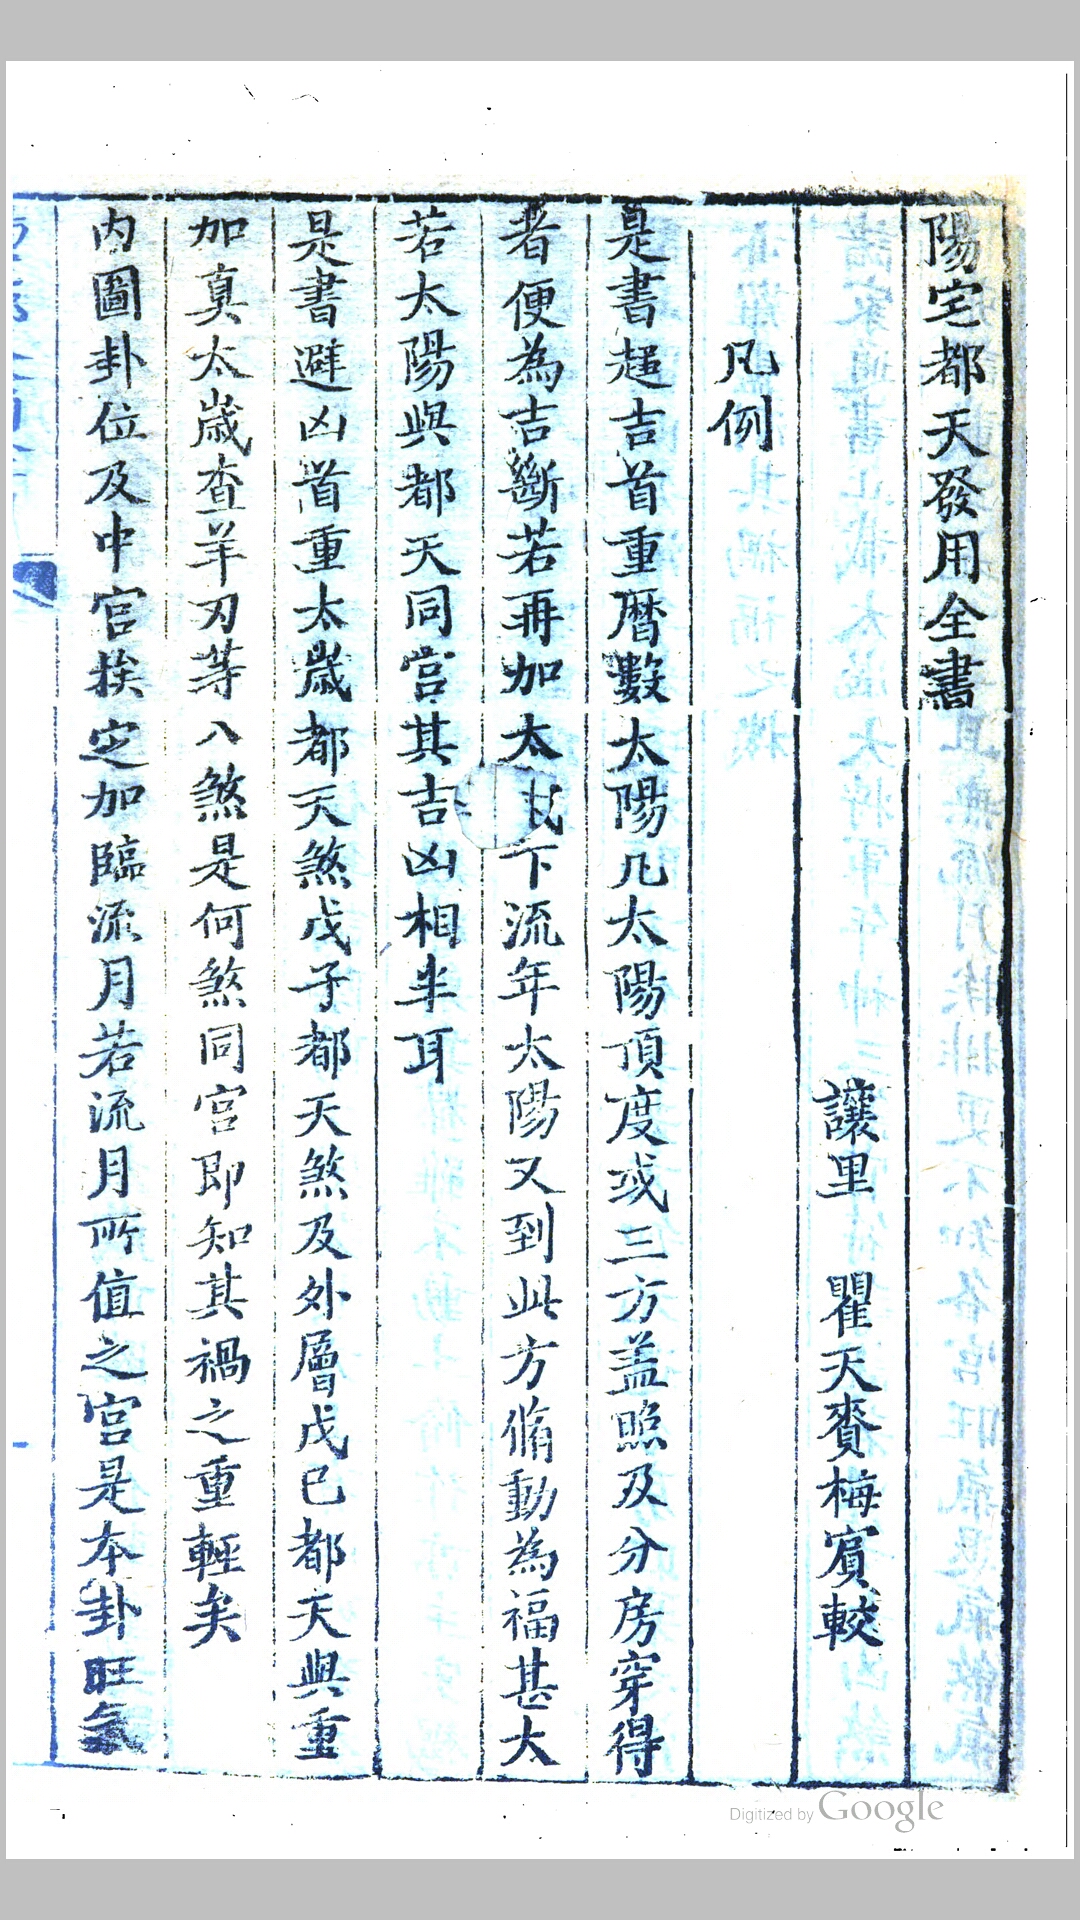 陽宅都天發用全書
讓里 瞿天賚梅賔較
凡例
是書趨吉首重曆數太陽凡太陽頂度或三方盖照及分房穿得
者便為吉斷若再加太歲下流年太陽又到此方脩動為福甚大
若太陽與都天同宮其吉凶相半耳
是書避凶首重太歲都天煞戊子都天煞及外層戊巳都天與重
加真太歲查羊刃等八煞是何煞同宮即知其禍之重輕矣
内圖卦位及中宮挨定加臨流月若流月所值之宮是本卦旺氣
Digitized by Google